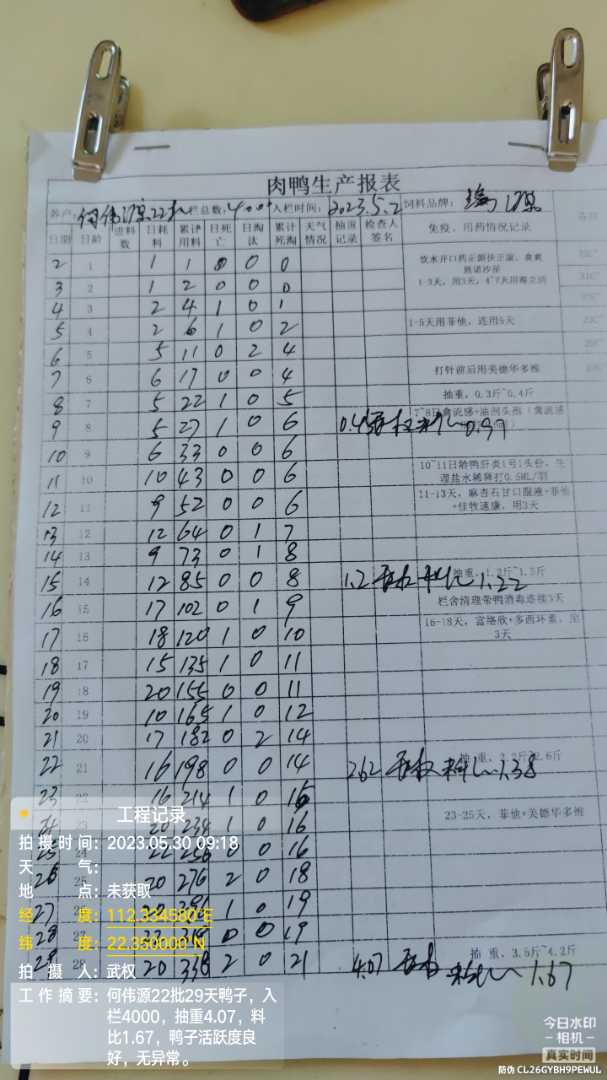 肉鸭生产报表
养户: 何伟源22批 栏总数: 4000 入栏时间: 2023.5.2 饲料品牌:
日期 日龄 进料数 日耗料 累计用料 日死亡 日淘汰 累计死淘 天气情况 抽重记录 检查人签名 免疫、用药情况记录
2 1 1 1 0 0 0 饮水开口药
3 2 1 2 0 0 0 1-3天,用3天,4-7天用
4 3 2 4 1 0 1
5 4 2 6 1 0 2 1-5天用菲他,连用5天
6 5 5 11 0 2 4
7 6 6 17 0 0 4 打针前后用美德华多维
8 7 5 22 1 0 5 抽重,0.3斤~0.4斤
9 8 5 27 1 0 6 0.45 武权 料比0.97 7~8日禽流感+油剂头孢(禽流感
10 9 6 33 0 0 6
11 10 10 43 0 0 6 10~11日龄鸭肝炎1号1头份,生理盐水稀释打0.5ML/羽
12 11 9 52 0 0 6 11-13天,麻杏石甘口服液+菲他+佳牧速康,用3天
13 12 12 64 0 1 7
14 13 9 73 0 1 8
15 14 12 85 0 0 8 1.2 武权 料比1.22 抽重,1.2斤~1.3斤
16 15 17 102 0 1 9 栏舍清理带鸭消毒连续3天
17 16 18 120 1 0 10 16-18天,富络欣+多西环素,用3天
18 17 15 135 1 0 11
19 18 20 155 0 0 11
20 19 10 165 1 0 12
21 20 17 182 0 2 14
22 21 16 198 0 0 14 2.62 武权 料比1.38 抽重,2.6斤
23 22 16 214 1 0 15
24 23 20 234 1 0 16 23-25天,菲他+美德华多维
25 22 256 0 0 16
26 25 20 276 2 0 18
27 20 1 0 19
28 22 318 0 0 19
29 28 20 338 2 0 21 4.07 武权 料比1.67 抽重,3.5斤~4.2斤
工程记录
拍摄时间: 2023.05.30 09:18
天气:
地点: 未获取
经度: 112.334580°E
纬度: 22.350000°N
拍摄人: 武权
工作摘要: 何伟源22批29天鸭子,入
栏4000,抽重4.07,料
比1.67,鸭子活跃度良
好,无异常。
今日水印
-相机-
真实时间
防伪 CL26GYBH9PEWUL